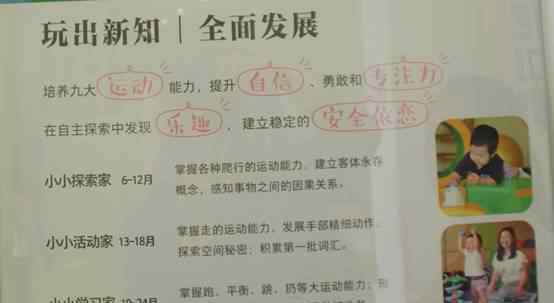 玩出新知｜全面发展
培养九大 运动 能力，提升 自信 、勇敢和 专注力
在自主探索中发现 乐趣 ，建立稳定的 安全依恋
小小探索家 6-12月
掌握各种爬行的运动能力，建立客体永存
概念，感知事物之间的因果关系。
小小活动家 13-18月
掌握走的运动能力，发展手部精细动作，
探索空间秘密；积累第一批词汇。
小小学习家 19-24月
掌握跑、平衡、跳、扔等大运动能力；